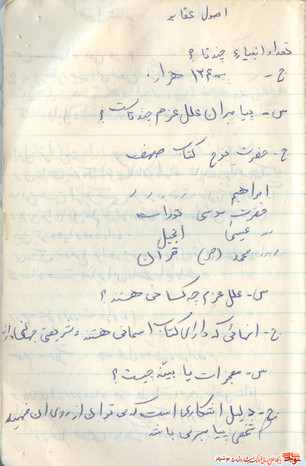 اصول عقاید
تعداد انبیاء چندتا؟
ج - ۱۲۴۰۰۰ هزار.
س - پیامبران علل عزم چندتاست؟
ج - حضرت نوح کتاب صحف
ابراهیم 〃 〃 〃
حضرت موسی توراسه
〃 عیسی انجیل
〃 محمد (ص) قرآن
س - علل عزم چه کسانی هستند؟
ج - انهائی که دارای کتاب اسمانی هستند و شریعتی جهانی دارند
س - معجزات یا بینه چیست؟
ج - دلیل اشکاری است که می توان از روی ان فهمید
شخصی پیامبر می باشد